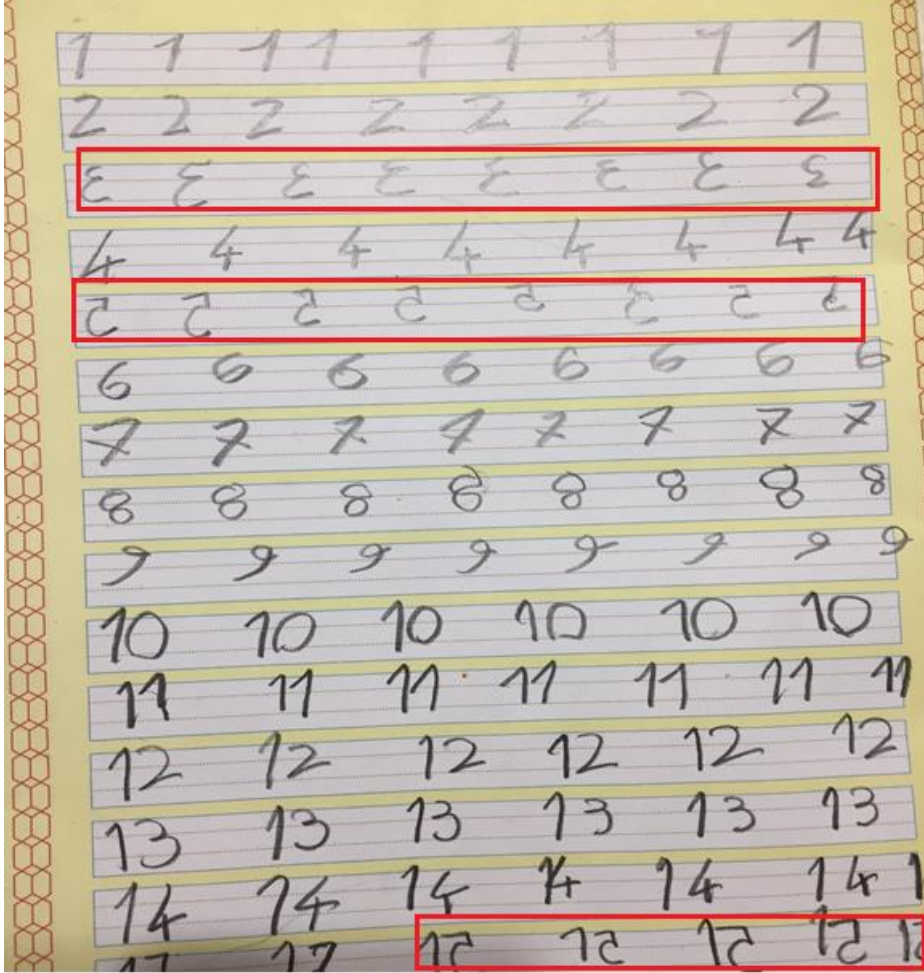 1 1 1 1 1 1 1 1 1
2 2 2 2 2 2 2 2
3 3 3 3 3 3 3 3
4 4 4 4 4 4 4 4
5 5 5 5 5 5 5 5
6 6 6 6 6 6 6 6
7 7 7 7 7 7 7 7
8 8 8 8 8 8 8 8
9 9 9 9 9 9 9 9
10 10 10 10 10 10
11 11 11 11 11 11 11
12 12 12 12 12 12
13 13 13 13 13 13
14 14 14 14 14 14 1
15 15 15 15